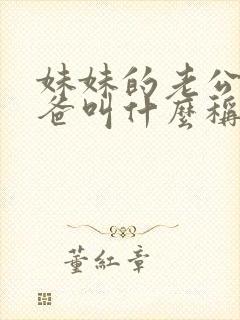 妹妹的老公
爸叫什麼稱
董紅章